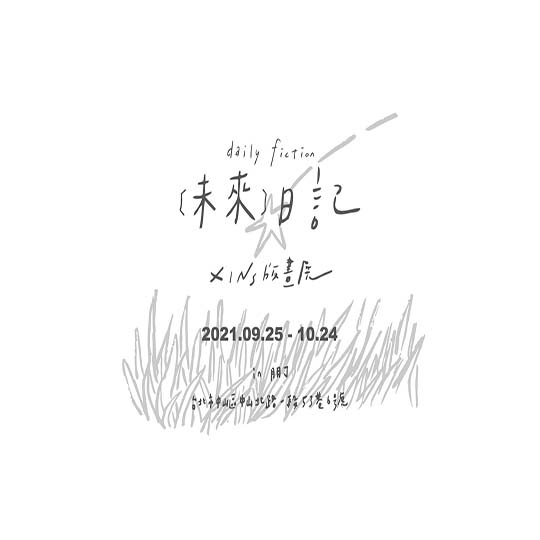 daily fiction
〔未來〕日記
XINS版畫展
2021.09.25 - 10.24
in 朋丁
台北市中山區中山北路一段53巷6號